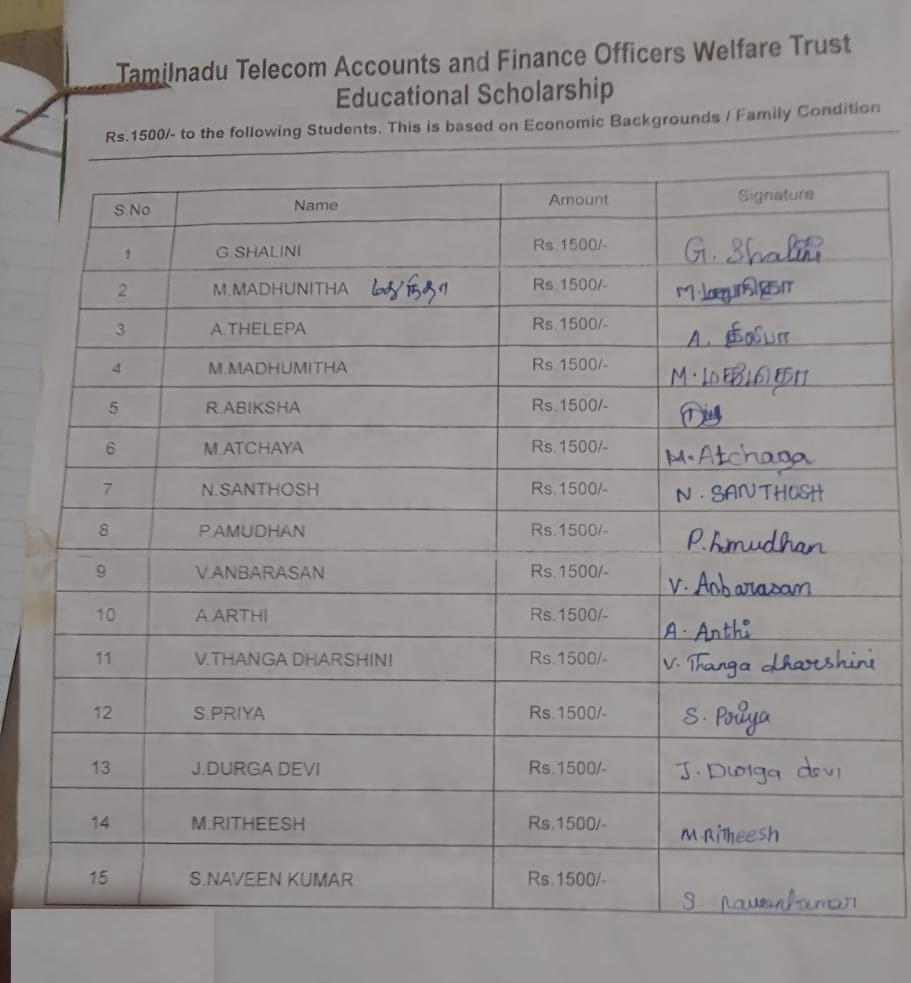 Tamilnadu Telecom Accounts and Finance Officers Welfare Trust
Educational Scholarship
Rs.1500/- to the following Students. This is based on Economic Backgrounds / Family Condition
S.No Name Amount Signature
1 G.SHALINI Rs.1500/- G. Shalini
2 M.MADHUNITHA Rs.1500/- M.
3 A.THELEPA Rs.1500/- A. திலீபா
4 M.MADHUMITHA Rs.1500/- M. மதுமிதா
5 R.ABIKSHA Rs.1500/-
6 M.ATCHAYA Rs.1500/- M. Atchaya
7 N.SANTHOSH Rs.1500/- N. SANTHOSH
8 P.AMUDHAN Rs.1500/- P. Amudhan
9 V.ANBARASAN Rs.1500/- V. Anbarasan
10 A.ARTHI Rs.1500/- A. Arthi
11 V.THANGA DHARSHINI Rs.1500/- V. Thanga dharshini
12 S.PRIYA Rs.1500/- S. Priya
13 J.DURGA DEVI Rs.1500/- J. Durga devi
14 M.RITHEESH Rs.1500/- M.Ritheesh
15 S.NAVEEN KUMAR Rs.1500/- S. naveenkumar